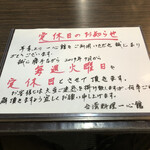 定休日のお知らせ
平素より一心館をご利用いただき誠にあり
がとうございます。
誠に勝手ながら2019年9月から
毎週火曜日を
定休日とさせて頂きます。
お客様には大変ご迷惑を掛け致しますが、何卒ご理
解頂きますよう宜しくお願い申し上げます。
台湾料理 一心館